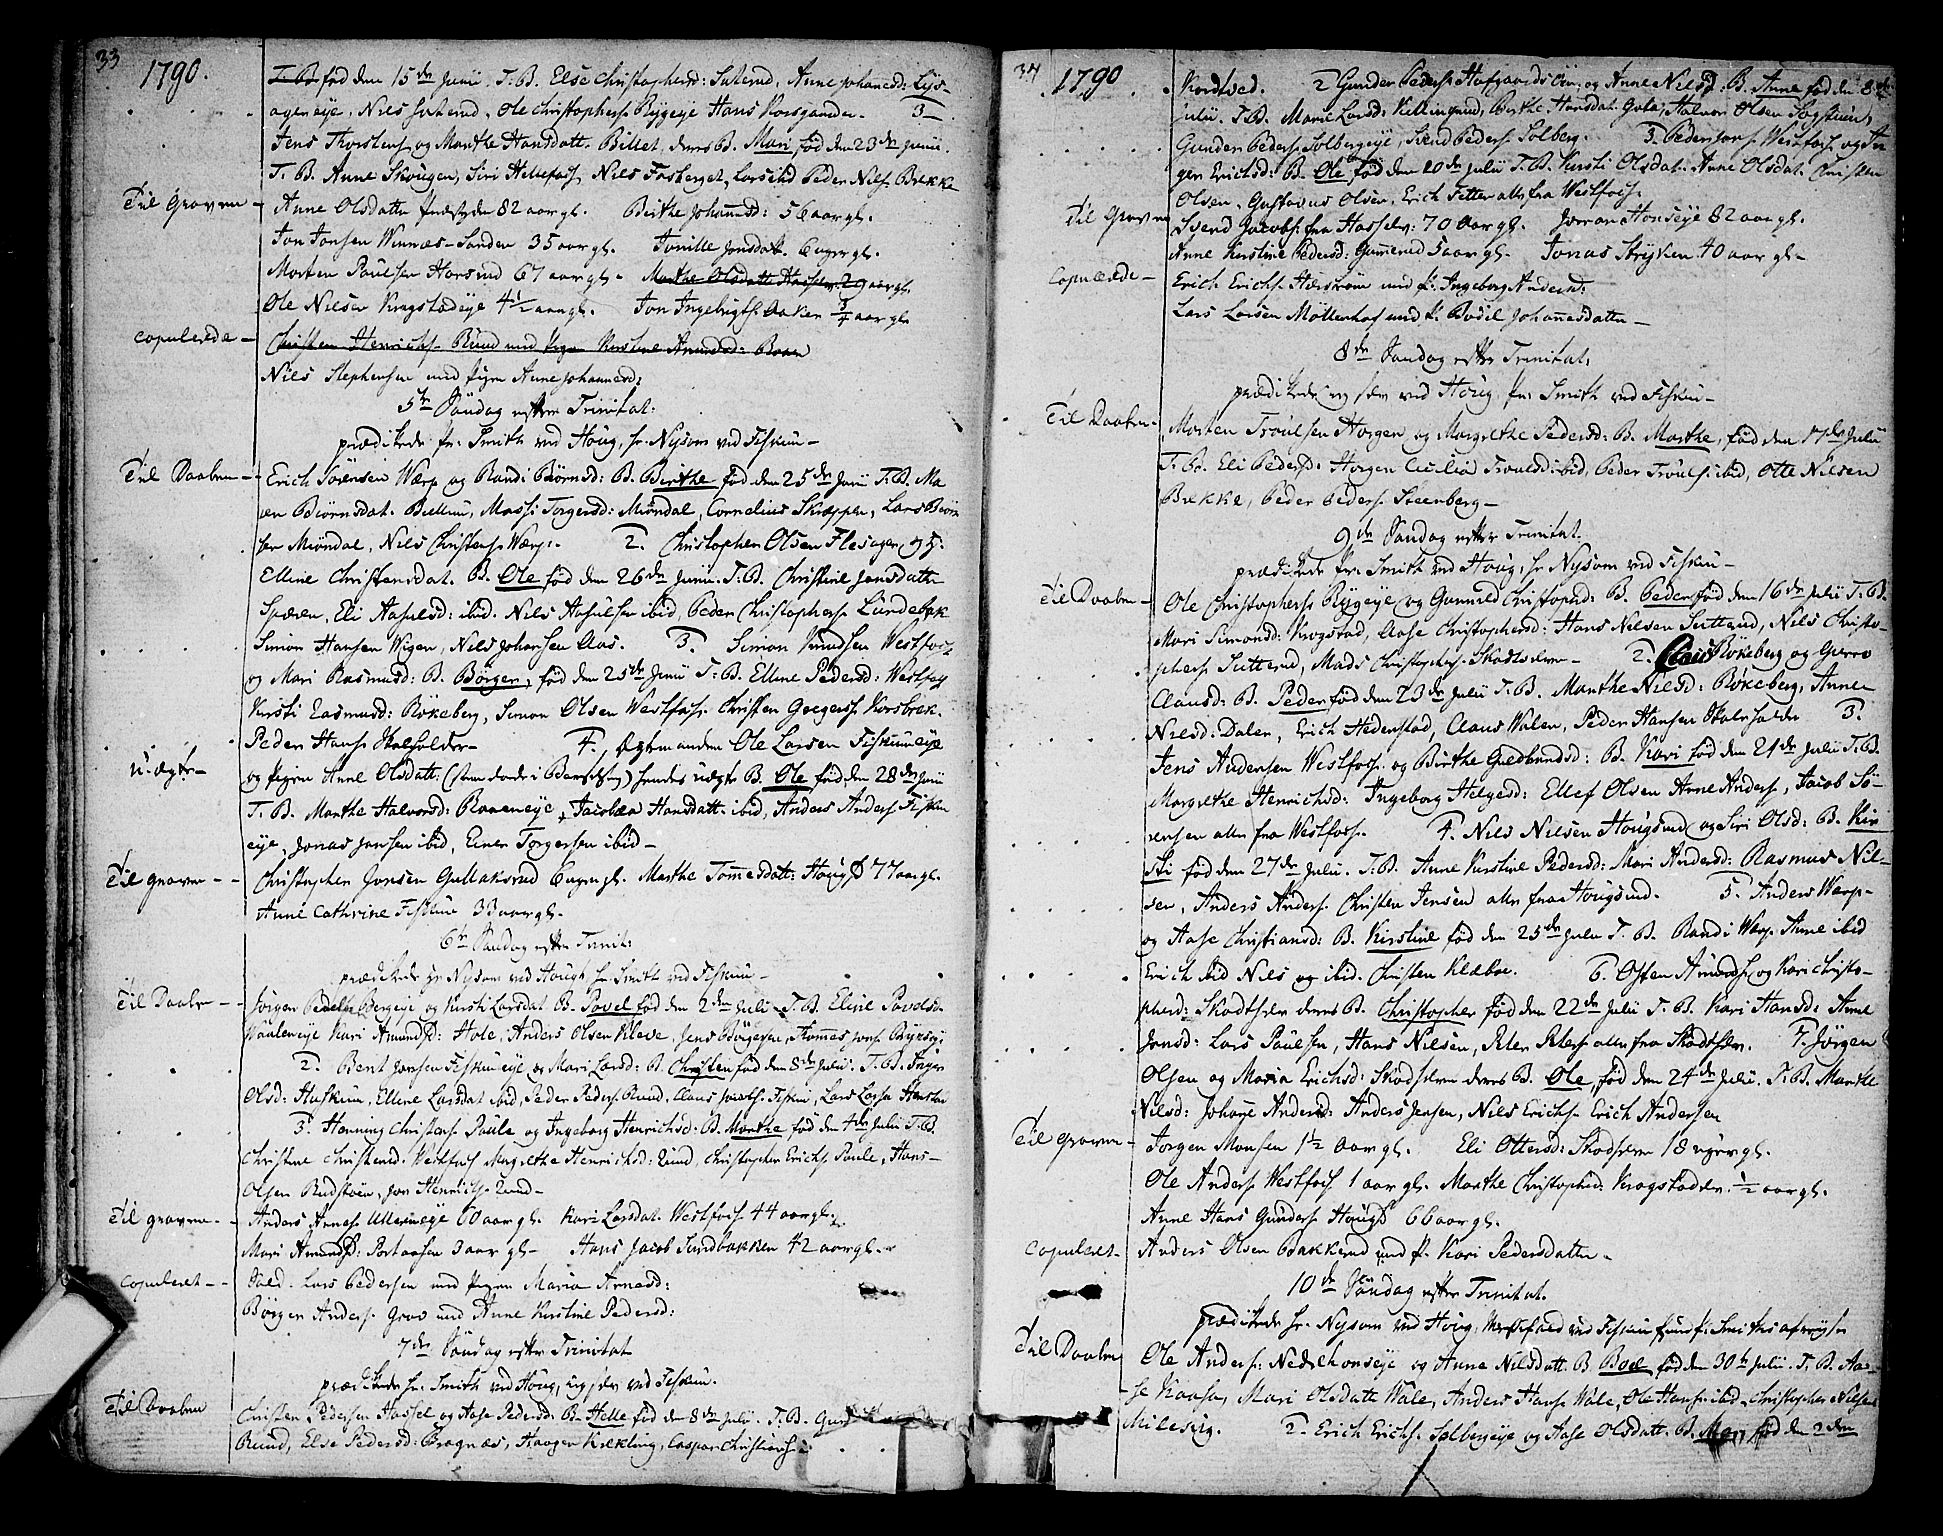 33
1790.
T. B. fød den 15de Junii. T. B. Else Christophersd: Suterud, Anne Johannesd: Lys-
ageneye, Nils Suterud, Ole Christophers. Rygeye Hans Korsganden. 3
Jens Thorstens. og Marthe Hansdatt. Billet, deres B. Mari, fød den 23de Junii.
T. B. Anne Skougen, Siri Hellefos, Nils Fosberget, Lars ibid Peder Nils. Bekke
Til Graven - Anne Olsdatter 82 aar gl. Berthe Johannesd: 56 aar gl.
Jon Jonsen Winnæs-Sanden 35 aar gl. Jonille Jonsdatt. 6 uger gl.
Morten Paulsen Horsrud 67 aar gl. Marthe Olsdatter 29 aar gl.
Ole Nilsen Krogstadeye 4 1/2 aar gl. Jon Ingebrigts. Aaker 3/4 aar gl.
copulerede - Christen Henrichs. Ruud med Pigen Kirstine Amundsd:
Nils Stephensen med Pigen Anne Johannesd:
5te Søndag efter Trinitat:
prædikede Hr. Smith ved Houg, Hr. Nysom ved Fiskum -
Til Daaben - Erich Sørensen Wærp og Randi Biørnsd: B. Berthe fød den 25de Junii T. B. Ma
ren Biørnsdat. Masse Torgersd: Miøndal, Cornelius Skæppen, Lars Biørn
sen Miøndal, Nils Christens. Wærp. 2. Christopher Olsen Flesager, og H.
Elline Christensdat. B. Ole fød den 26de Junii. T. B. Christine Jensdatter
Spæren, Eli Aasulsd: ibid. Nils Aasulsen ibid Peder Christophers. Lundebak
Simon Hansen Wigen, Nils Johansen Aas. 3. Simon Knudsen Westfos
og Mari Rasmusd: B. Børger, fød den 25de Junii T. B. Elline Pedersd: Westfos
Kirsti Rasmusd: Røkeberg, Simon Olsen Westfos. Christen Gregers. Korsbrek.
Peder Hans. Skalsholder - 4. Ole Larsen Fiskumeye
u. ægte - og Pigen Anne Olsdatt: hendes uægte B. Ole fød den 28de Junii
T. B. Marthe Halvorsd: Raaeneye, Jacobæa Hansdatt. ibid, Anders Anders. Fiskum
eye, Jonas Jonsen ibid, Einer Torgersen ibid -
Til graven - Christopher Jonsen Gullaksrud 6 uger gl. Marthe Tommesdatt: Hougs 77 aar gl.
Anne Cathrine Fiskum 33 aar gl.
6te Søndag efter Trinit:
prædikede Hr Nysom ved Hough Hr. Smith ved Fiskum -
Til Daaben - Jørgen Peders. Bergeye og Kirsti Larsdat B. Povel fød den 2den Julii T. B. Elisie Povelsd.
Kari Amundsd: Hole, Anders Olsen Kleve, Jens Børgesen, Tommes Jons.
2. Bent Jonsen Fiskumeye og Mari Larsd: B. Christen fød den 8de Julii. T. B. Inger
Olsd: Huskum, Elline Larsdat ibid, Peder Peders. Ruud, Claus Fiskum, Lars Lars.
3. Henning Christens. Paule og Ingeborg Henrichsd: B. Marthe fød den 4de Julii T. B.
Christine Christensd. Westfos Margrethe Henrichsd: Ruud, Christopher Erichs. Paule, Hans
Olsen Rudstøen, Jon Henrichs. Ruud -
Til graven - Anders Arnes. Ullerneye 60 aar gl. Kari Larsdat. Westfos. 44 aar gl.
Mari Amundsd: Portaasen 3 aar gl - Hans Jacob Sundbakken 42 aar gl.
copuleret - Sold. Lars Pedersen med Pigen Maria Arnesd:
Børger Anders. Grov med Anne Kirstine Pedersd:
7de Søndag efter Trinitat
prædikede Hr. Smith ved Houg, og ved Fiskum.
Til Daaben Christen Pedersen Hassel og Aase Pedersd: B. Helle fød den 8de Julii. T. B.
Ruud, Else Pedersd: Bragnæs, Haagen Kækling, Casper Christians.
34
1790
Nordtved. 2 Gunder Peders. Hofgaards Øvre og Anne Nilsd. B. Anne fød den 8de
Julii. T. B. Marie Larsd: Killingrud, Berthe Hansdat. Gole, Halvor Olsen Sogstuen,
Gunder Peders. Solbergeye, Svend Peders. Solberg. 3. Peder Jons. Westfos og In
ger Erichsd: B. Ole fød den 20de Julii T. B. Kirsti Olsdat. Anne Olsdat. Christen
Olsen, Gustavus Olsen, Erich Tetter alle fra Westfos.
Til Graven Svend Jacobs. fra Hasselv. 70 aar gl. Jorran Honseye 82 aar gl.
Anne Kirstine Pedersd: Gunnerud 5 aar gl. Jonas Stryken 40 aar gl -
Copulerede - Erich Erichs. Hærstrøm med P: Ingeborg Andersd:
Lars Larsen Möllenhof med P. Bodil Johannesdatter -
8de Søndag efter Trinitat.
prædikede og ved Houg Hr. Smith ved Fiskum -
Til Daaben - Morten Troulsen Horgen og Margrethe Pedersd: B. Marthe, fød den 17de Julii
T. B. Eli Pedersd: Horgen Cicilia Troulsd: ibid, Peder Trouls. ibid, Otte Nilsen
Bekke, Peder Peders. Steenberg -
9de Søndag efter Trinitat.
prædikede Hr. Smith ved Houg, Hr Nysom ved Fiskum -
Til Daaben - Ole Christophers. Rygeye og Gunnild Christophd: B. Peder fød den 16de Julii T. B.
Mari Simonsd: Krogstad, Aase Christophersd: Hans Nilsen Sutterud, Nils Christo-
phers. Sutterud, Mads Christophers. Skodtselven - 2. Claus Røkeberg og Gurro
Clausd: B. Peder fød den 23de Julii T. B. Marthe Nilsd: Røkeberg, Anne
Nilsd: Dalen, Erich Hedenstad, Claus Walen, Peder Hansen Skalsholder 3.
Jens Andersen Westfos. og Birthe Gulbrandsd: B. Kari fød den 21de Julii T. B.
Margrethe Henrichsd: Ingeborg Helgesd: Ellef Olsen Arne Anders. Jacob Sö-
rensen alle fra Westfos. 4. Nils Nilsen Hougsrud og Siri Olsd: B. Kir
sti fød den 27de Julii. T. B. Anne Kirstine Pedersd: Mari Andersd: Rasmus Nil-
sen, Anders Anders. Christen Jensen alle fra Hougsrud. 5. Anders Wærp
og Aase Christiansd: B. Kirstine fød den 25de Julii T. B. Randi Wærp Anne ibid
Erich ibid Nils og ibid. Christen Klæboe. 6. Osten Amunds. og Kari Christo-
phersd: Skodtselven deres B. Christopher fød den 22de Julii T. B. Kari Hansd: Anne
Jonsd: Lars Paulsen, Hans Nilsen, Peter Peters. alle fra Skodtselv. 7. Jørgen
Olsen og Maria Erichsd: Skodselven deres B. Ole, fød den 24de Julii. T. B. Marthe
Nilsd: Johanne Andersd: Anders Jensen, Nils Erichs. Erich Andersen
Til Graven - Jørgen Monsen 1 1/2 Aar gl. Eli Ottersd: Skodselven 18 uger gl.
Ole Anders. Westfos 1 aar gl. Marthe Christophersd: Krogstadelv. 1/2 aar gl.
Anne Hans Gunders. Hougs 66 aar gl.
copuleret - Anders Olsen Bakkerud med P. Kari Pedersdatter -
10de Søndag efter Trinitat.
prædikede Hr. Nysom ved Houg, Messefald ved Fiskum
Til Daaben Ole Anders: Nedrehonseye og Anne Nilsdatt. B Boel fød den 30te Julii. T. B. Aa-
se Kaasa, Mari Olsdatt Wale, Anders Hans. Wale, Ole Hans. ibid, Christopher Nilsen
Milesvig. 2. Erich Erichs. Solbergeye og Aase Olsdatt. B. fød den 2den